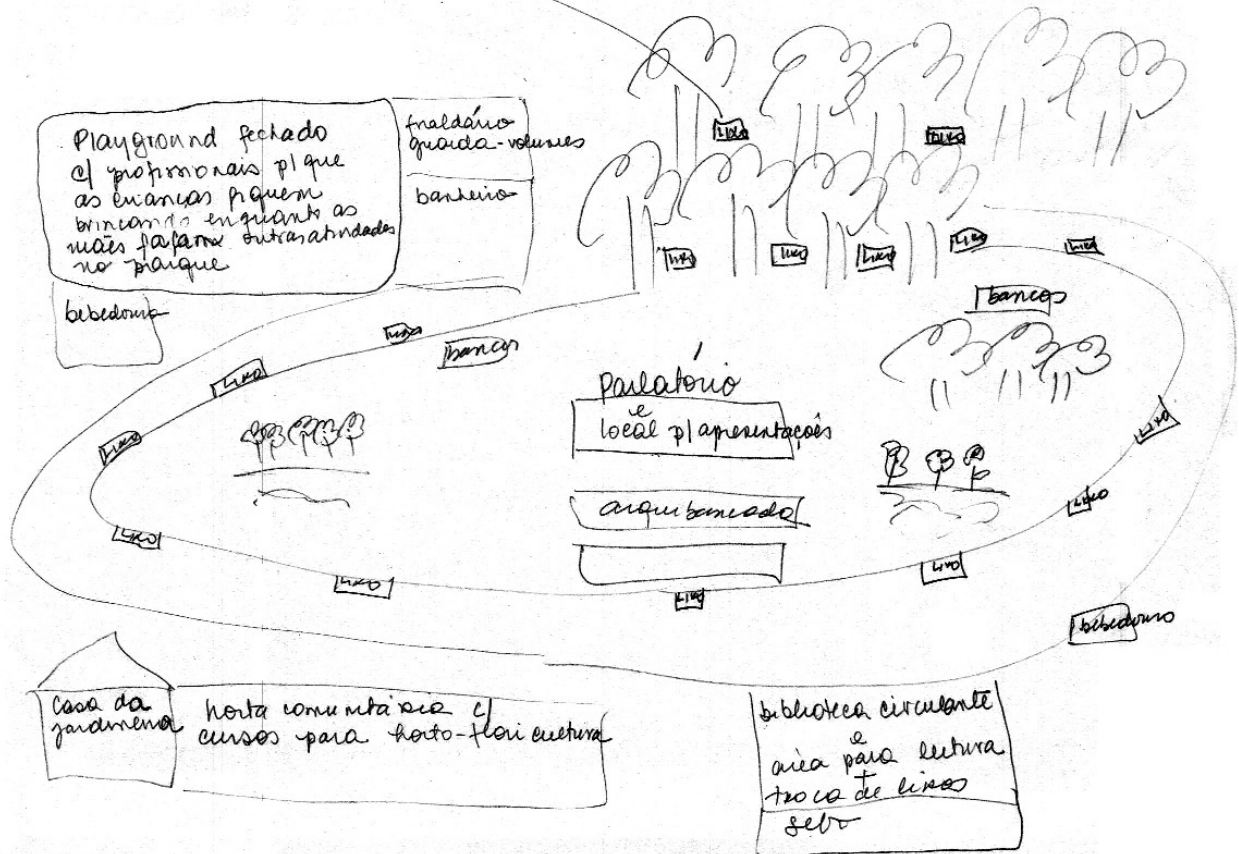 Playground fechado
c/ profissionais p/ que
as crianças fiquem
brincando enquanto as
mães façam outras atividades
no parque
fraldário
guarda-volumes
banheiro
bebedouro
LIXO
LIXO
LIXO
LIXO
LIXO
LIXO
LIXO
bancos
LIXO
bancos
LIXO
LIXO
LIXO
LIXO
LIXO
LIXO
LIXO
LIXO
LIXO
parlatório
e
local p/ apresentações
arquibancada
bebedouro
casa da
jardineria
horta comunitária c/
cursos para horto-floricultura
biblioteca circulante
e
área para leitura
+
troca de livros
sebo